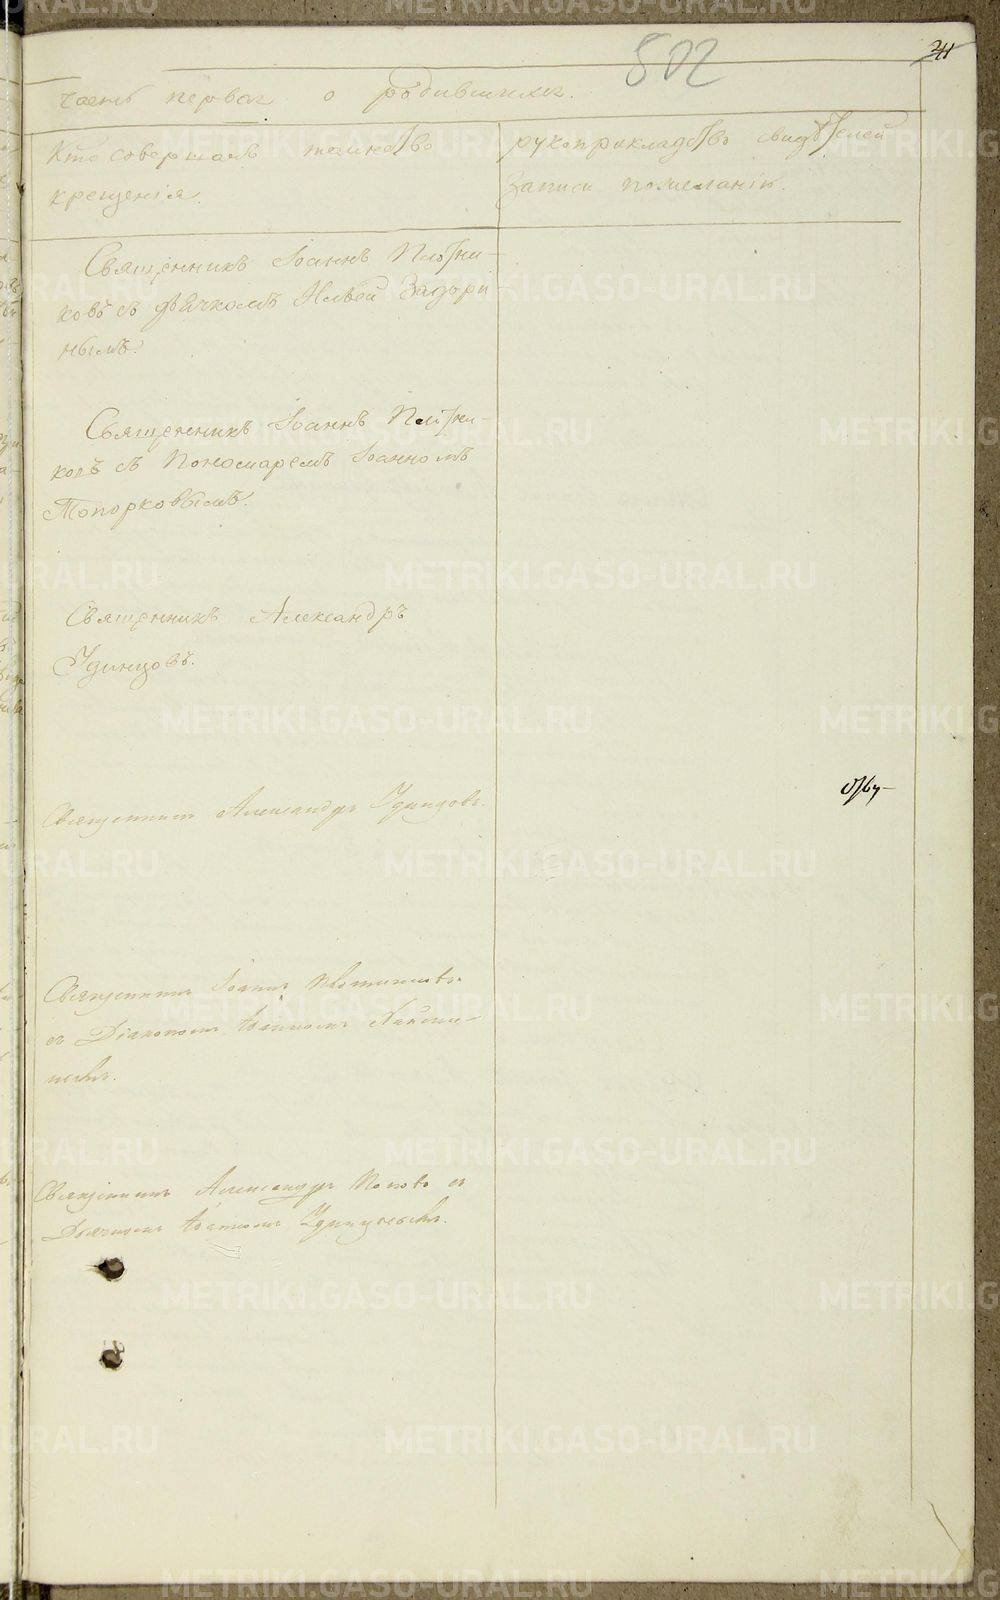 502
часть первая о родившихся.
Кто совершалъ таинство
крещенія.
рукоприкладство свидѣтелей
записи по желанію.
Священникъ Іоаннъ Плотни-
ковъ съ дьячкомъ Ильей Задори-
нымъ.
Священникъ Іоаннъ Плотни-
ковъ съ Пономаремъ Іоанномъ
Топорковымъ.
Священникъ Александръ
Удинцовъ.
Священникъ Александръ Удинцовъ.
Священникъ Іоаннъ Плотниковъ
съ Діакономъ Іоанномъ
Священникъ Александръ Поповъ съ
Дьячкомъ Удинцевымъ.
METRIKI.GASO-URAL.RU